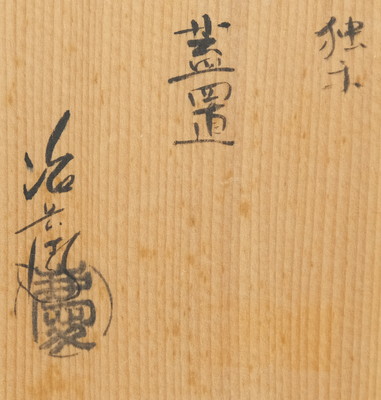 独楽
蓋置
治兵衛